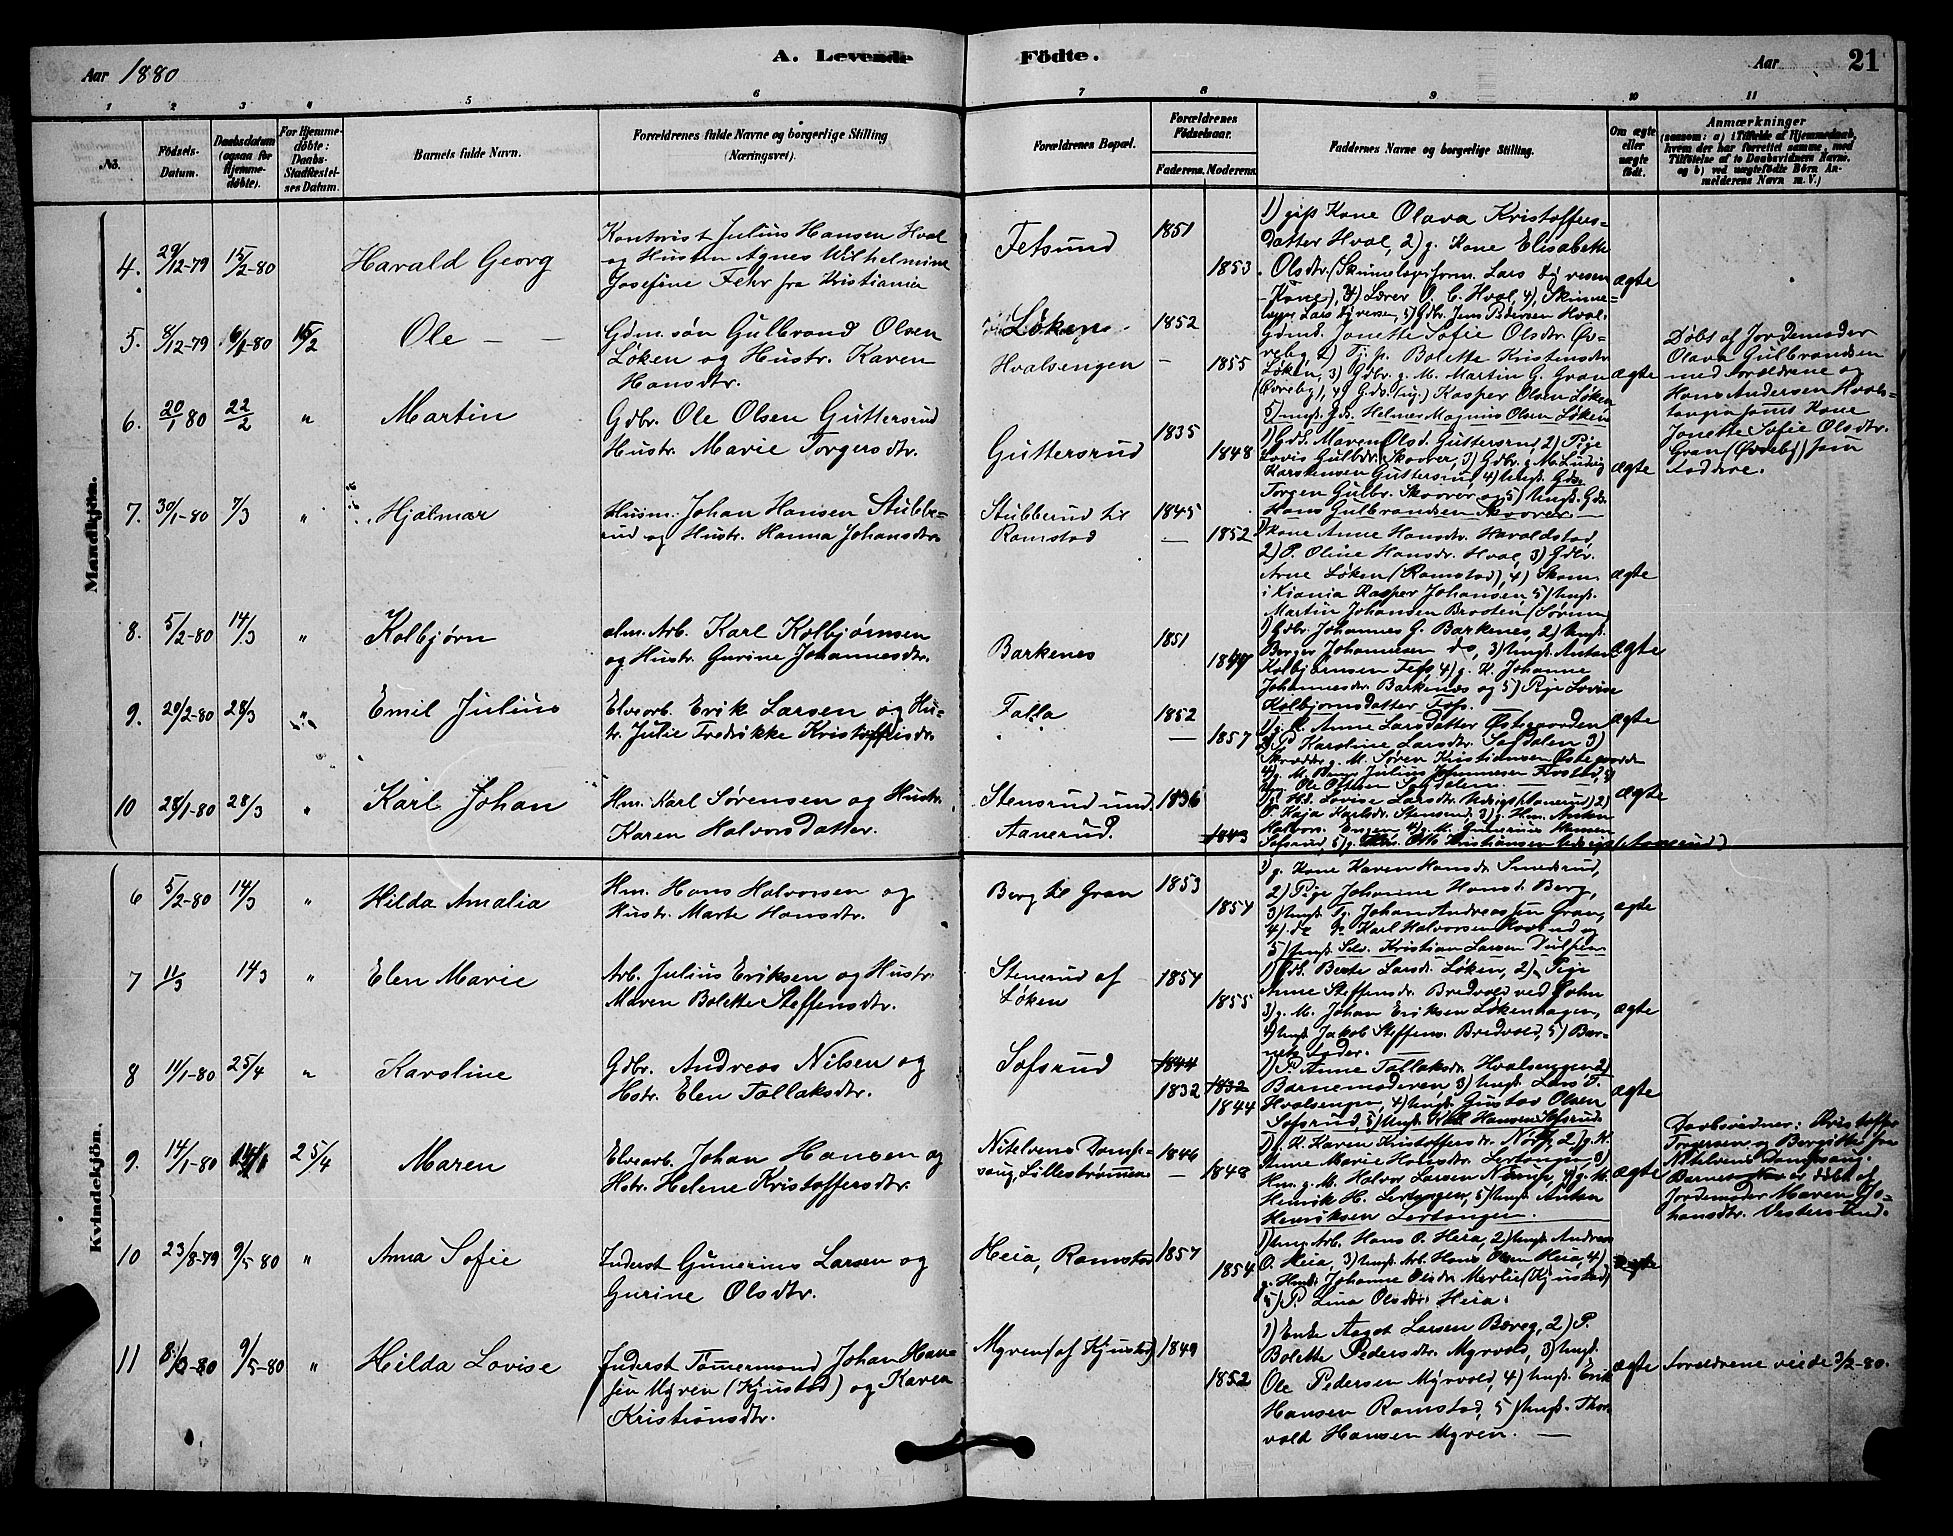 Aar 1880
A. Levende Födte.
Aar 21
1 2 3 4 5 6 7 8 9 10 11
No.
Födsels-
Datum.
Daabsdatum
(ogsaa for
Hjemme-
döbte).
For Hjemme-
döbte:
Daabs-
Stadfæstel-
ses Datum.
Barnets fulde Navn.
Forældrenes fulde Navne og borgerlige Stilling
(Næringsvei).
Forældrenes Bopæl.
Forældrenes
Födselsaar.
Faderens. Moderens.
Faddernes Navne og borgerlige Stilling.
Om ægte
eller
uægte
födt.
Anmærkninger
(saasom: a) i Tilfælde af Hjemmedaab,
hvem der har forrettet samme, med
Tilföielse af to Daabsvidners Navne,
og b) ved uægtefödte Börn An-
melderens Navn m. V.)
Mandkjön.
4. 29/12-79 15/2-80 Harald Georg
Kontorist Julius Hansen Hval
og Hustru Agnes Wilhelmine
Josefine Fehr fra Kristiania
Fetsund
1851
1853
1) gift Kone Olava Kristoffers-
datter Hval, 2) g. Kone Elisabeth
Olsdtr. (Skinnelægsform. Lars
Kone), 3) Lærer O. C. Hval, 4) Skinne-
lægger Lars Syversen, 5) Gdbr. Jens Pedersen Hval.
ægte
5. 8/12-79 6/1-80 15/2 Ole
Gdm. søn Gulbrand Olsen
Løken og Hustr. Karen
Hansdtr.
Løken
Hvalsengen
1852
1855
Jonette Sofie Olsdtr. Øv-
reby 2) Tj. p. Bolette Kristensdtr
Løken, 3) Gdbr. g. M. Martin G. Gran
(Øvreby), 4) Gds. (ug.) Kasper Olsen Løken
5) Ungk. Gds. Helmer Magnus Olsen Løken
ægte
Døbt af Jordemoder
Olava Gulbrandsen
med Forældrene og
Hans Andersen Hvals-
Kone
Jonette Sofie Olsdtr.
Gran (Øvreby) som
Faddere.
6. 20/1-80 22/2 " Martin
Gdbr. Ole Olsen Guttersrud
Hustr. Marie Torgersdtr.
Guttersrud
1835
1848
1) Gds. Maren Olsd. Guttersrud, 2) Pige
Lovis Gulbdr. Skovrer, 3) Gdbr. g. M. Ludvig
Karstensen Guttersrud, 4) Ungk. Gds.
Torgen Gulbr. Skovrer og 5) Ungk. Gds.
Hans Gulbrandsen Skovrer.
ægte
7. 30/1-80 7/3 " Hjalmar
Husm. Johan Hansen Stubbe-
rud og Hustr. Hanna Johansdtr.
Stubberud til
Ramstad
1845
1852
1) Kone Anne Hansdtr. Haraldstad,
2) P. Oline Hansdr. Hval, 3) Gdbr.
Arne Løken (Ramstad), 4) Skom.
i Xiania Kasper Johansen 5) Ungk.
Martin Johansen Brodten (Sørum
ægte
8. 5/2-80 14/3 " Kolbjørn
alm. Arb. Karl Kolbjørnsen
og Hustr. Gurine Johannesdtr.
Barkenes
1851
1847
1) Gdbr. Johannes G. Barkenes, 2) Ungk.
Berger Johannesen do, 3) Ungk. Anton
Kolbjørnsen Foss, 4) g. K. Johanne
Johannesdr. Barkenæs og 5) Pige Lovise
Kolbjørnsdatter Foss.
ægte
9. 20/2-80 28/3 " Emil Julius
Elvearb. Erik Larsen og Hu-
str. Julie Fredrikke Kristoffersdr.
Falla
1852
1857
1) g. K. Anne Larsdatter Østegaarden
2) P. Karoline Larsdtr. Sagdalen 3)
Skrædder g. M. Søren Kristiansen Østegaarden
4) g. M. Julius Johannesen
Ole Ottesen Sagdalen.
ægte
10 28/1-80 28/3 " Karl Johan
Hm. Karl Sørensen og Hustr.
Karen Halvorsdatter.
Stensrud und.
Aanerud.
1836
1843
Lovise Larsdtr. (Aanerud) 2)
P. Kaja Karlsdr. Stensrud, 3) g. Hm. Anton
Halvors. Engen 4) g. M. Gunerius Hansen
Sofsrud, 5) g. Otto Kristiansen (Aanerud)
ægte
Kvindekjön.
6 5/2-80 14/3 " Hilda Amalia
Hm. Hans Halvorsen og
Hustr. Marte Hansdtr.
Berg til Gran
1853
1857
1) g. Kone Karen Hansdr. Smedsrud,
2) Pige Johanne Hansd. Berg,
3) Ungk. Tj. Johan Andreassen Gran,
4) do do Karl Halvorsen og
5) Ungk. Selv. Kristian Larsen
ægte
7 11/3 14/3 " Elen Marie
Arb. Julius Eriksen og Hustr.
Maren Bolette Steffensdtr.
Stenerud af
Løken
1857
1855
1) Berte Larsdr. Løken, 2) Pige
Anne Steffensdr. Bredvold ved
3) g. M. Johan Eriksen Løkenhagen,
4) Ungk. Jakob Steffens. Bredvold, 5) Bar-
nets Fader.
ægte
8 11/1-80 25/4 " Karoline
Gdbr. Andreas Nilsen og
Hstr. Elen Tollaksdtr.
Sofsrud
1844
1832
1832
1844
1) P. Anne Tollaksdr. Hvalsengen 2)
Barnemoderen, 3) Ungk. Lars T.
Hvalsengen, 4) Ungk. Gustav Olsen
Sofsrud, 5) Ungk. Hansen Sofsrud
ægte
9. 14/1-80 14/1 25/4 Maren
Elvearb. Johan Hansen og
Hstr. Helene Kristoffersdtr.
Nitelvens Damp-
saug, Lillestrømmen
1846
1848
1) g. K. Karen Kristoffersdr. 2) g. K.
Anne Marie Hansdtr. Lertangen, 3)
Hm. g. M. Halvor Larsen 4) g. M.
Henrik H. Lertangen, 5) Ungk. Anton
Henriksen Lertangen.
ægte
Daabsvidner: Kristoffer
Torgersen og Bergitte fra
Nitelvens Dampsaug.
Barnet døbt af
Jordemoder Maren Jo-
hansdtr. Vestersund.
10 23/8-79 9/5-80 " Anna Sofie
Inderst Gunerius Larsen og
Gurine Olsdtr.
Heia, Ramstad
1857
1854
1) Ung. Arb. Hans O. Heia, 2) Ungk. Andreas
O. Heia, 3) Ungk. Arb. Hans Olsen Heia, 4)
g. Johanne Olsdtr. Merlie (Kjustad)
5) P. Lina Olsdtr. Heia.
ægte
11 8/3-80 9/5-80 " Hilda Lovise
Inderst Tømermand Johan Han-
sen Myren (Kjustad) og Karen
Kristiansdtr.
Myren (af Kjustad)
1849
1852
1) Enke Aaget Larsen Bæreg, 2) P.
Bolette Pedersdtr. Myrvold, 3) Ungk.
Ole Pedersen Myrvold, 4) Ungk. Erik
Hansen Ramstad, 5) Ungk. Thor-
vald Hansen Myren.
ægte
Forældrene viede 3/2-80.